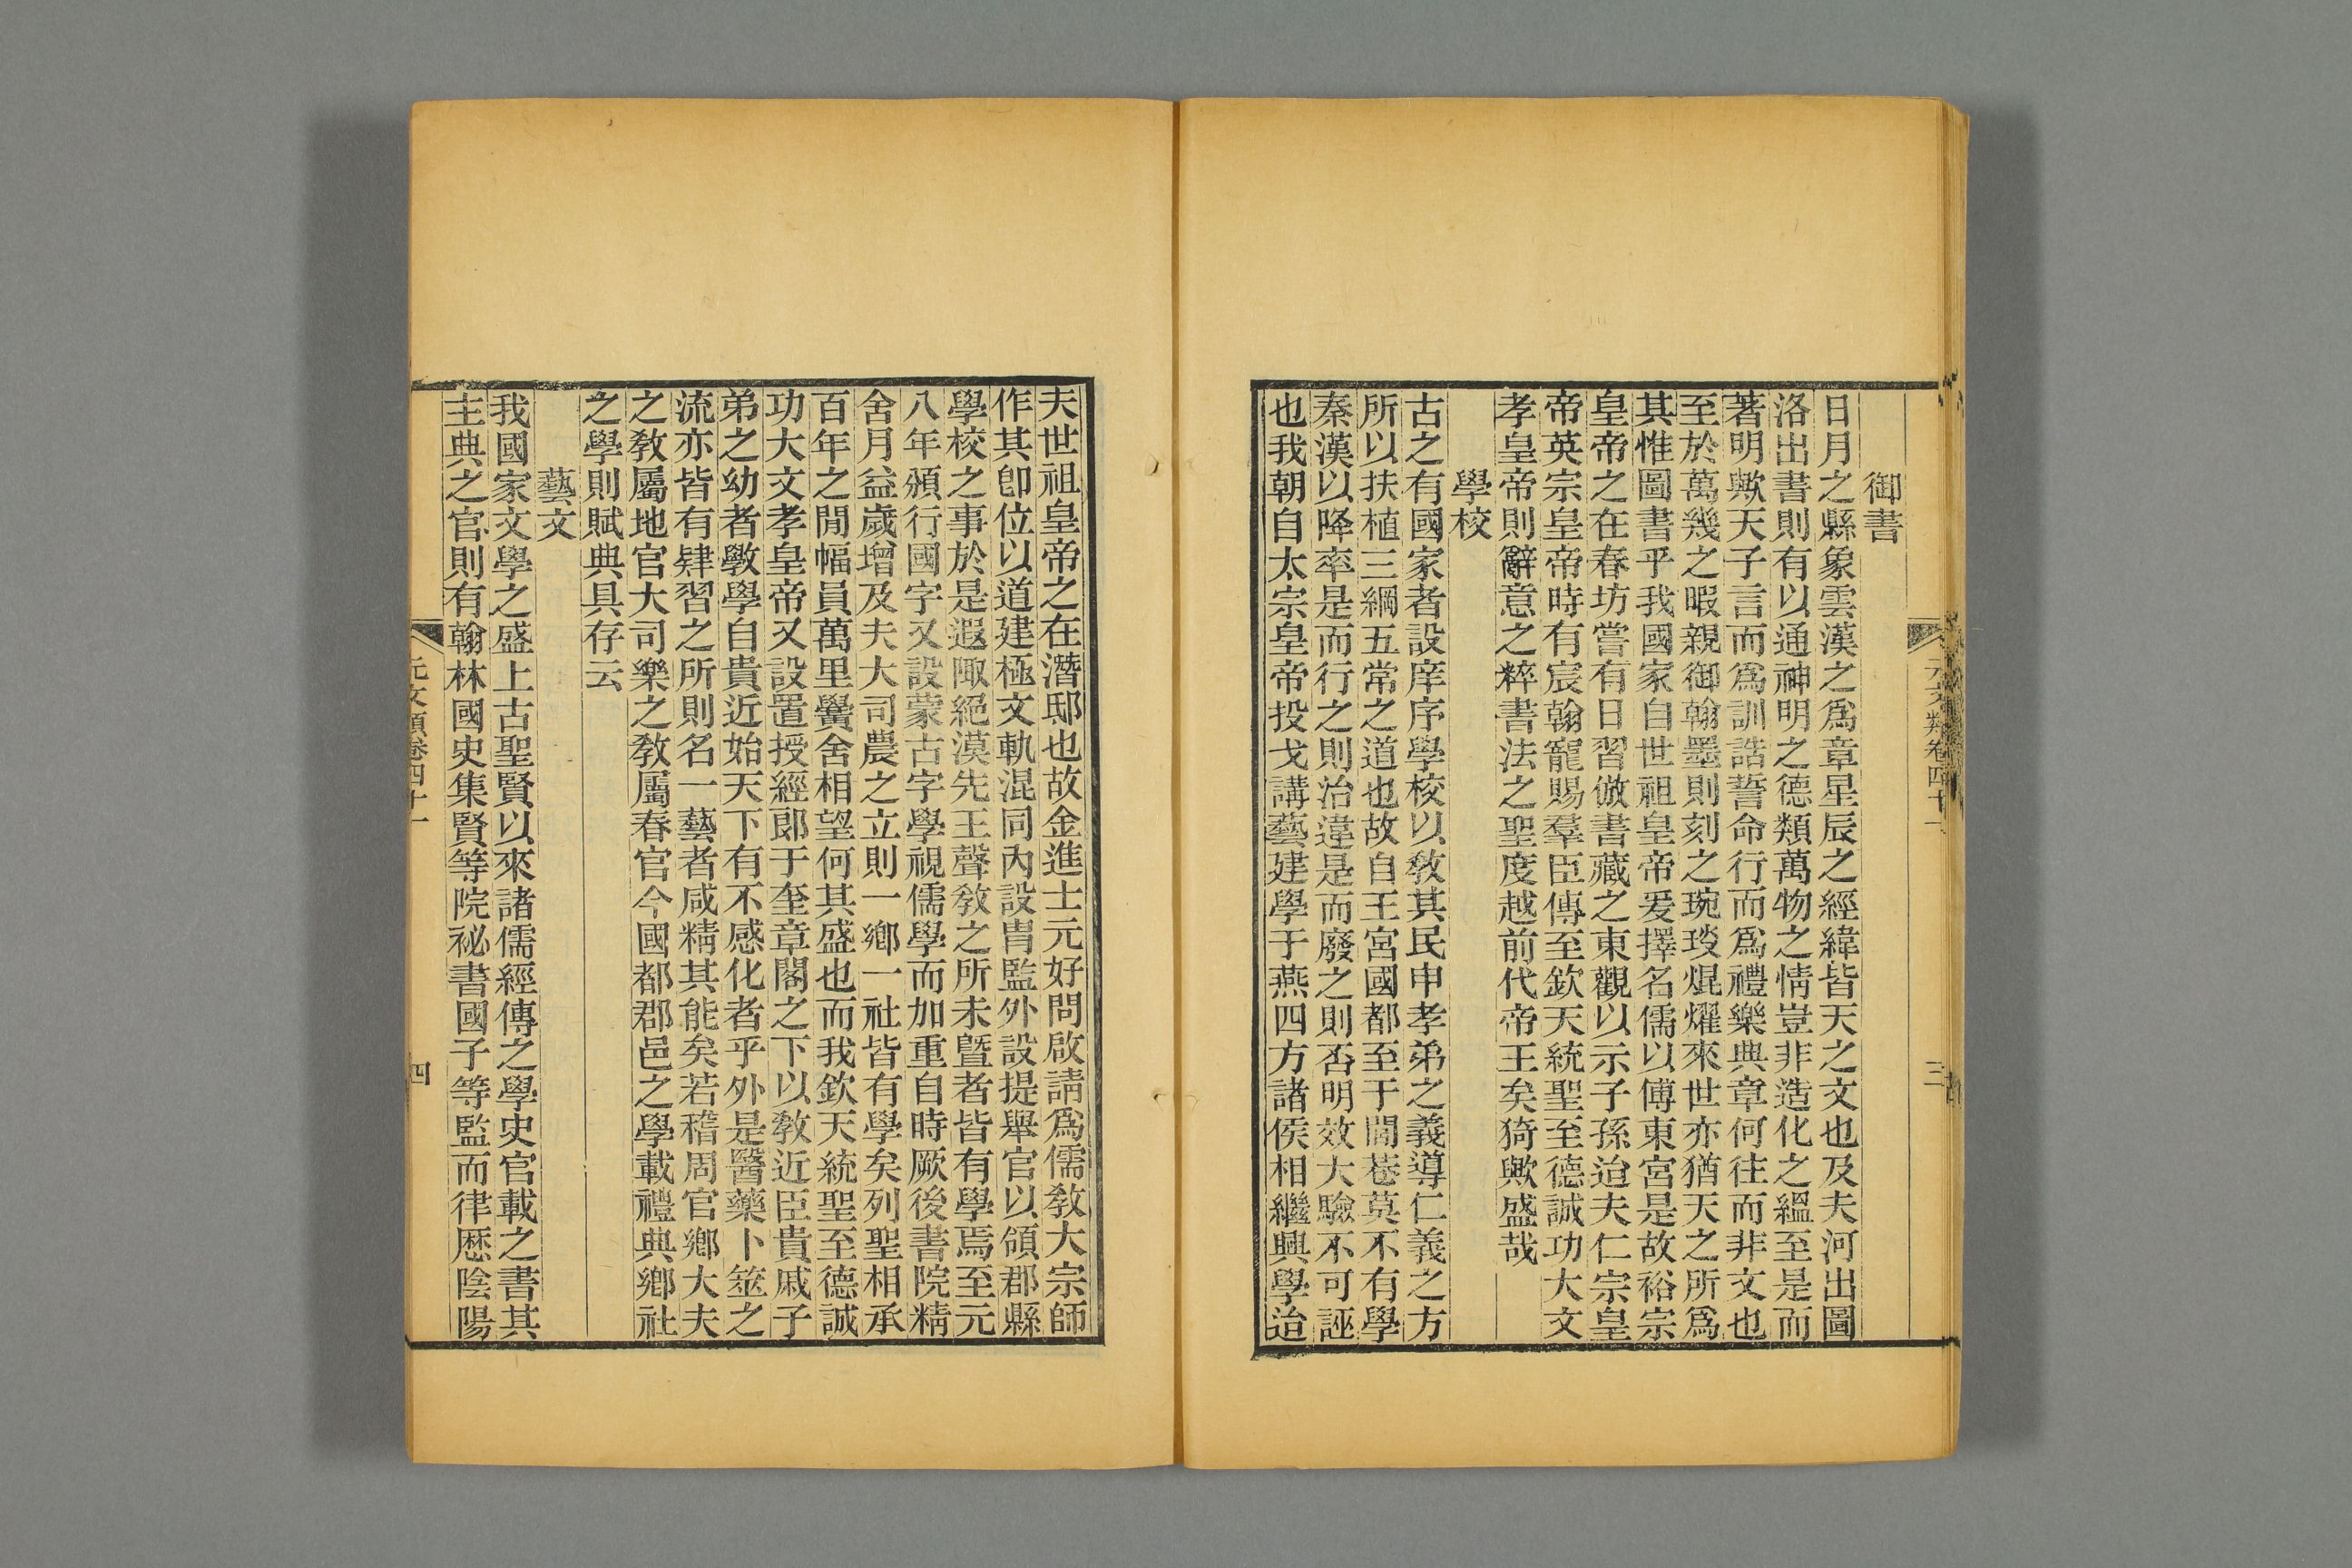 元文類卷四十一
三
御書
日月之縣象雲漢之爲章星辰之經緯皆天之文也及夫河出圖
洛出書則有以通神明之德類萬物之情豈非造化之縕至是而
著明歟天子言而爲訓誥誓命行而爲禮樂典章何往而非文也
至於萬幾之暇親御翰墨則刻之琬琰焜燿來世亦猶天之所爲
其惟圖書乎我國家自世祖皇帝爰擇名儒以傅東宮是故裕宗
皇帝之在春坊嘗有日習倣書藏之東觀以示子孫迨夫仁宗皇
帝英宗皇帝時有宸翰寵賜羣臣傳至欽天統聖至德誠功大文
孝皇帝則辭意之粹書法之聖度越前代帝王矣猗歟盛哉
學校
古之有國家者設庠序學校以敎其民申孝弟之義導仁義之方
所以扶植三綱五常之道也故自王宮國都至于閭巷莫不有學
秦漢以降率是而行之則治違是而廢之則否明效大驗不可誣
也我朝自太宗皇帝投戈講藝建學于燕四方諸侯相繼興學迨
夫世祖皇帝之在潛邸也故金進士元好問啟請爲儒敎大宗師
作其卽位以道建極文軌混同內設冑監外設提舉官以領郡縣
學校之事於是遐陬絕漠先王聲敎之所未曁者皆有學焉至元
八年頒行國字又設蒙古字學視儒學而加重自時厥後書院精
舍月益歲增及夫大司農之立則一鄉一社皆有學矣列聖相承
百年之閒幅員萬里黌舍相望何其盛也而我欽天統聖至德誠
功大文孝皇帝又設置授經郞于奎章閣之下以敎近臣貴戚子
弟之幼者斆學自貴近始天下有不感化者乎外是醫藥卜筮之
流亦皆有肄習之所則名一藝者咸精其能矣若稽周官鄉大夫
之敎屬地官大司樂之敎屬春官今國都郡邑之學載禮典鄉社
之學則賦典具存云
藝文
我國家文學之盛上古聖賢以來諸儒經傳之學史官載之書其
主典之官則有翰林國史集賢等院祕書國子等監而律歷陰陽
元文類卷四十一
四